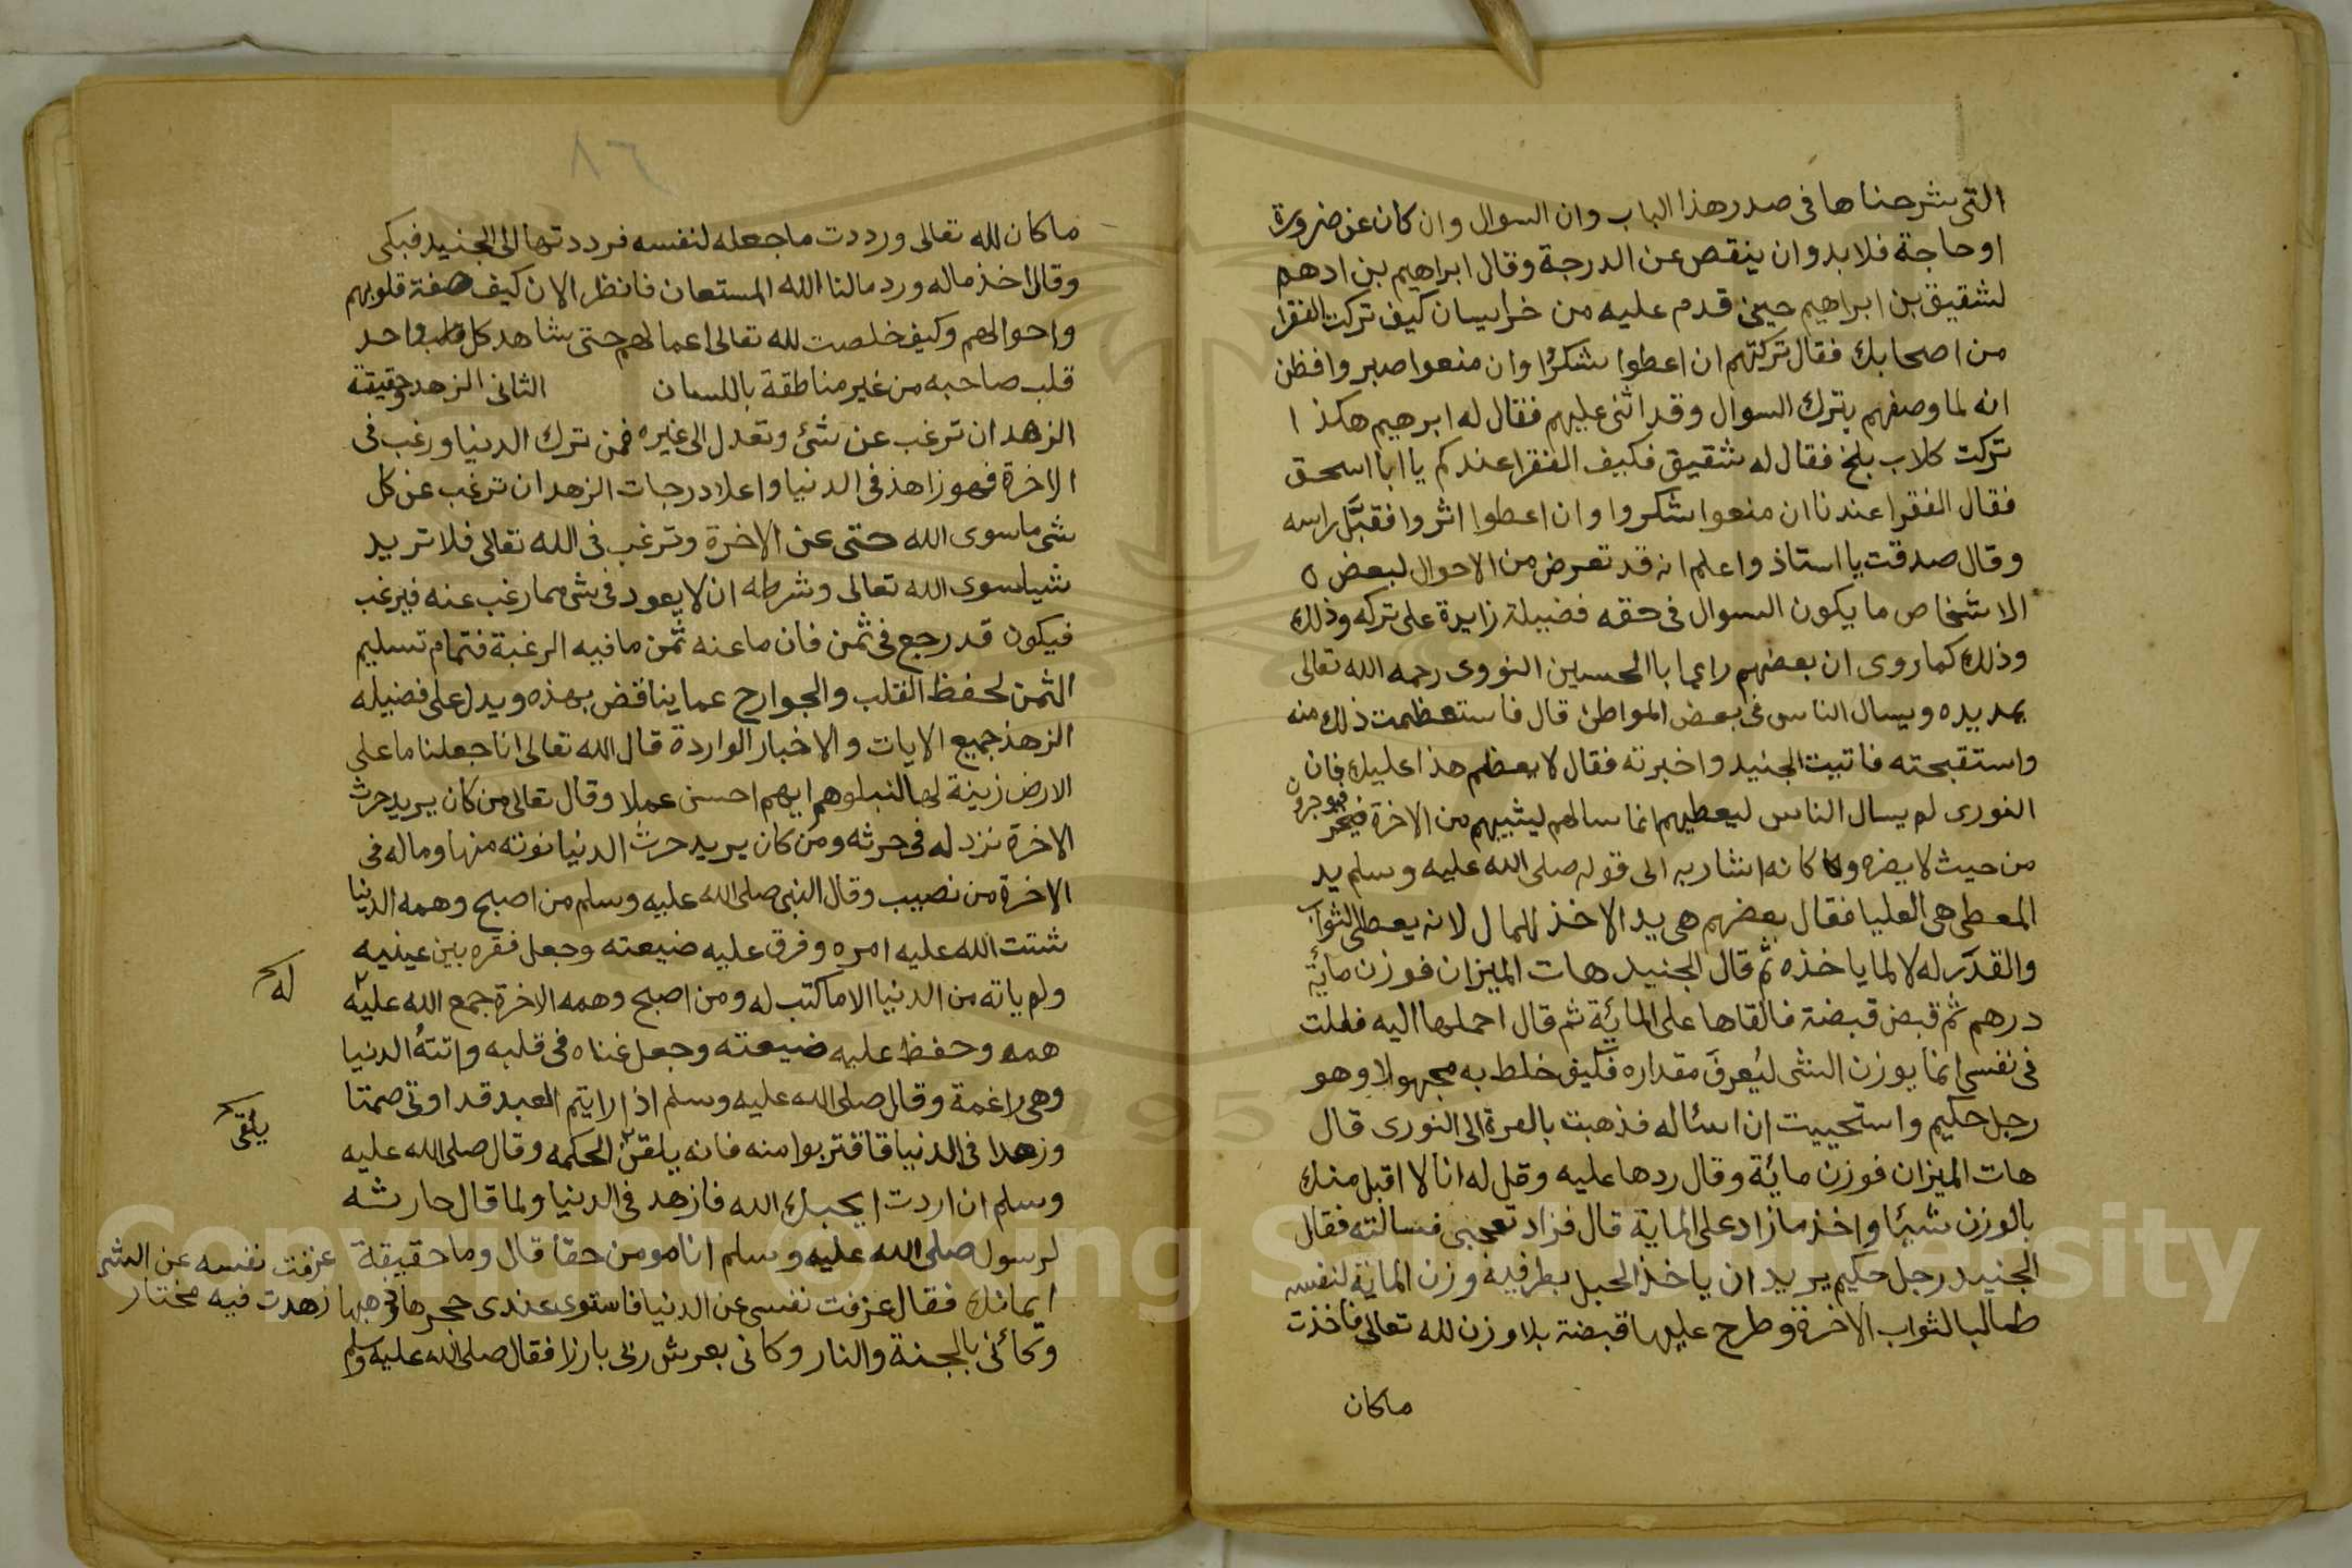 التى شرحناها فى صدر هذا الباب وان السوال وان كان عن ضرورة
او حاجة فلا بد وان ينقص عن الدرجة وقال ابراهيم بن ادهم
لشقيق بن ابراهيم حين قدم عليه من خراسان كيف تركت الفقرا
من اصحابك فقال تركتهم ان اعطوا شكرُوا وان منعوا صبروا فظن
انه لما وصفهم بترك السوال وقد اثنى عليهم فقال له ابرهيم هكذا
تركت كلاب بلخ فقال له شقيق فكيف الفقرا عندكم يا ابا اسحق
فقال الفقرا عندنا ان منعوا شكروا وان اعطوا اثروا فقبَّل راسه
وقال صدقت يا استاذ واعلم انه قد تعرض من الاحوال لبعض ٥
الاشخاص ما يكون السوال فى حقه فضيلة زايدة على تركه وذلك
وذلك كما روى ان بعضهم راى ابا الحسين النووى رحمه الله تعالى
يمد يده ويسال الناس فى بعض المواطن قال فاستعظمت ذلك منه
واستقبحته فاتيت الجنيد واخبرته فقال لا يعظم هذا عليك فان
النورى لم يسال الناس ليعطيهم انما سالهم ليثيبهم من الاخرة فيوجرون
من حيث لا يضره وكانه اشار به الى قوله صلى الله عليه وسلم يد
المعطى هى العليا فقال بعضهم هى يد الاخذ للمال لانه يعطى الثواب
والقدَر له لا لما ياخذه ثم قال الجنيد هات الميزان فوزن مائة
درهم ثم قبض قبضة فالقاها على المائة ثم قال احملها اليه فقلت
فى نفسى انما يوزن الشى ليُعرفَ مقداره فكيف خلط به مجهولا وهو
رجل حكيم واستحييت ان اسئاله فذهبت بالصرة الى النورى قال
هات الميزان فوزن مائة وقال ردها عليه وقل له انا لا اقبل منك
بالوزن شيئا واخذ ما زاد على الماية قال فزاد تعجبى فسالته فقال
الجنيد رجل حكيم يريد ان ياخذ الحبل بطرفيه وزن الماية لنفسه
طالبا لثواب الاخرة وطرح عليها قبضة بلا وزن لله تعالى فاخذت
ماكان
٨٦
ماكان لله تعالى ورددت ما جعله لنفسه فرددتها الى الجنيد فبكى
وقال اخذ ماله ورد مالنا الله المستعان فانظر الان كيف صفة قلوبهم
واحوالهم وكيف خلصت لله تعالى اعمالهم حتى شاهد كل قلب واحد
قلب صاحبه من غير مناطقة باللسان الثانى الزهد وحقيقة
الزهد ان ترغب عن شئ وتعدل الى غيره فمن ترك الدنيا ورغب فى
الاخرة فهو زاهذ فى الدنيا واعلا درجات الزهد ان ترغب عن كل
شى ما سوى الله حتى عن الاخرة وترغب فى الله تعالى فلا تريد
شيا سوى الله تعالى وشرطه ان لا يعود فى شى مما رغب عنه فيرغب
فيكون قد رجع فى ثمن فان ما عنه ثمن ما فيه الرغبة فتمام تسليم
الثمن لحفظ القلب والجوارح عما يناقض بهذه ويدل على فضيله
الزهذ جميع الايات والاخبار الواردة قال الله تعالى انا جعلنا ما على
الارض زينة لها لنبلوهم ايهم احسن عملا وقال تعالى من كان يريد حرث
الاخرة نزد له فى حرثه ومن كان يريد حرث الدنيا نوته منها وماله فى
الاخرة من نصيب وقال النبى صلى الله عليه وسلم من اصبح وهمه الدنيا
شتت الله عليه امره وفرق عليه ضيعته وجعل فقره بين عينيه
ولم ياته من الدنيا الا ما كتب له ومن اصبح وهمه الاخرة جمع الله عليه
له
همه وحفظ عليه ضيعته وجعل غناه فى قلبه واتتهُ الدنيا
وهى راغمة وقال صلى الله عليه وسلم اذا رايتم العبد قد اوتى صمتا
وزهدا فى الدنيا فاقتربوا منه فانه يلقن الحكمه وقال صلى الله عليه
يلقى
وسلم ان اردت ا يحبك الله فازهد فى الدنيا ولما قال حارثه
لرسول صلى الله عليه وسلم انا مومن حقا قال وما حقيقة
ايمانك فقال عزفت نفسى عن الدنيا فاستوى عندى حجرها وذهبها
عزفت نفسه عن الشى
زهدت فيه مختار
وكانى بالجنة والنار وكانى بعرش ربى بارزا فقال صلى الله عليه وسلم
Copyright © King Saud University
1957